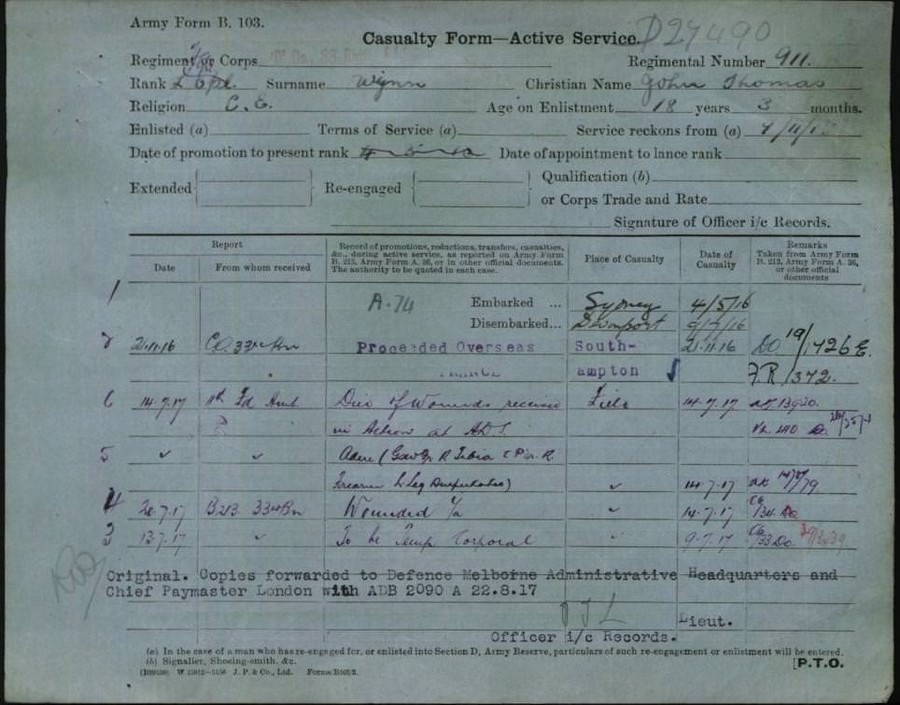 Army Form B. 103.
D27490
Casualty Form—Active Service.
Regiment or Corps Regimental Number 911.
Rank L Cpl. Surname Wynn Christian Name John Thomas
Religion C. E. Age on Enlistment 18 years 3 months.
Enlisted (a) Terms of Service (a) Service reckons from (a)
Date of promotion to present rank Date of appointment to lance rank
Extended Re-engaged Qualification (b)
or Corps Trade and Rate
Signature of Officer i/c Records.
Report
Date From whom received
Record of promotions, reductions, transfers, casualties, &c., during active service, as reported on Army Form B. 213, Army Form A. 36, or in other official documents. The authority to be quoted in each case.
Place of Casualty
Date of Casualty
Remarks Taken from Army Form B. 213, Army Form A. 36, or other official documents
1 A.74 Embarked ... Sydney 4/5/16
Disembarked... Devonport 9/7/16
2 21.11.16 CO 33rd Bn Proceeded Overseas South- 21.11.16 DO 19/1426 E.
ampton F.R 1372.
6 14.7.17 11th Fd Amb Died of Wounds received Field 14.7.17
in Action at ADS
5 " " Adm ( R Tibia
Forearm L Leg Amputated) " 14.7.17
4 B213 33rd Bn Wounded i/a " 14.7.17
3 13.7.17 " To be Temp Corporal " 9.7.17
Original. Copies forwarded to Defence Melborne Administrative Headquarters and
Chief Paymaster London with ADB 2090 A 22.8.17
Lieut.
Officer i/c Records.
(a) In the case of a man who has re-engaged for, or enlisted into Section D, Army Reserve, particulars of such re-engagement or enlistment will be entered.
(b) Signaller, Shoeing-smith, &c.
J. P. & Co., Ltd.
[P.T.O.